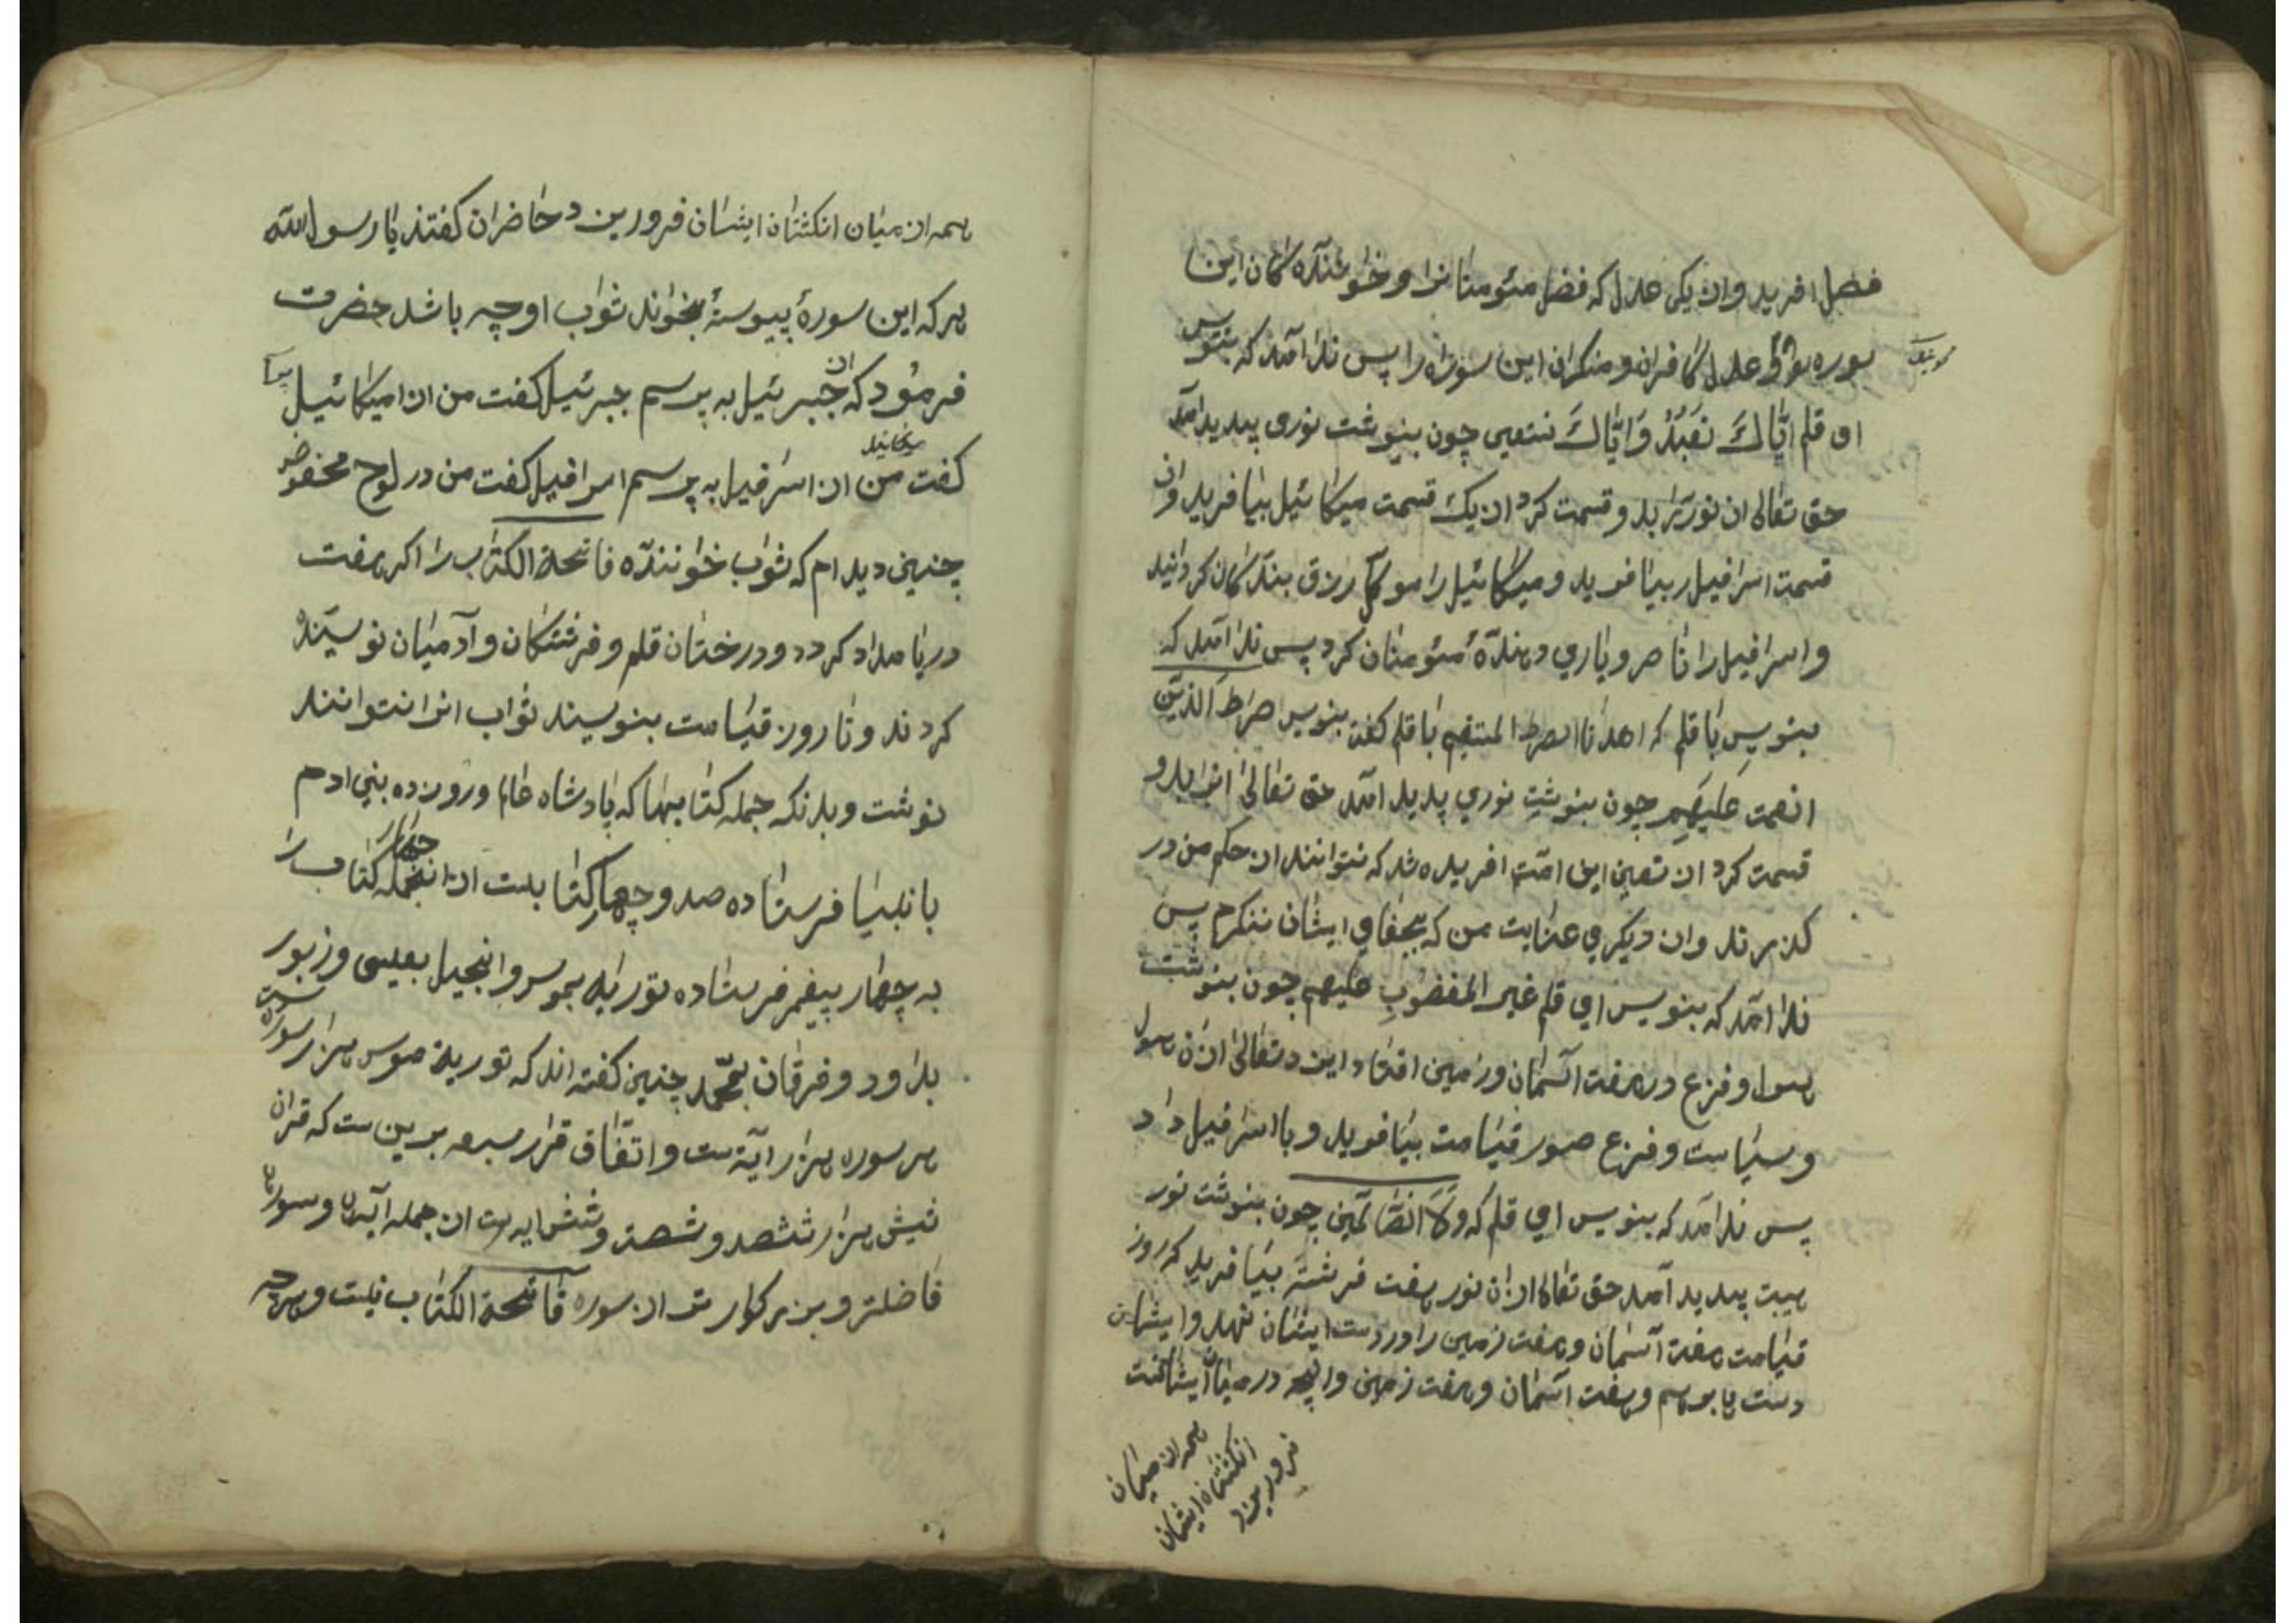 فضل افرید وان یکی عدل که فضل مئومنانرا و خوانندهٔ کان این
سوره بود و عدل کافران و منکران این سوره را پس ندا آمد که بنویس
ای قلم ایّاکَ نَعبُدُ وَایّاکَ نستعین چون بنوشت نوری پدید آمد
حق تعالی ان نور را بدو قسمت کرد از یک قسمت میکائیل بیافرید واز
قسمت اسرافیل بیافرید و میکائیل را موکل رزق بندکان کردانید
و اسرافیل را ناصر و یاری دهندهٔ مئومنان کرد پس ندا آمد که
بنویس با قلم که اهدنا الصرط المستقیم با قلم کفت بنویس صَرَطَ الَّذینَ
انعمت عَلَیهِم چون بنوشت نوری پدید آمد حق تعالی انرا بدو
قسمت کرد ان نعیم این امّت افریده شد که نتوانند از حکم من در
کذرند وان دیکری عنایت من که بجفای ایشان ننکرم پس
ندا آمد که بنویس ای قلم غیر المغضوبِ علیهم چون بنوشت
هول و فزع در هفت آسمان و زمین افتاد ایزد تعالی ازان هول
و سیاست و فزع صور قیامت بیافرید و با اسرافیل داد
پس ندا آمد که بنویس ای قلم که وَلاَ الضّالّین چون بنوشت نور
هیبت پدید آمد حق تعالی ازان نور هفت فرشته بیافرید که روز
قیامت هفت آسمان و هفت زمین را در دست ایشان نهد و ایشان
دست بر هم و هفت آسمان و هفت زمین وانچه در میان ایشانست
همه از میان
انکشتان ایشان
فرو ریزد
همه از میان انکشتان ایشان فرو ریزد حاضران کفتند یا رسول الله
هر که این سورهٔ پیوستهٔ بخواند ثواب او چه باشد حضرت
فرمود که از جبرئیل به پرسم جبرئیل کفت من از میکائیل
کفت میکائیل من از اسرافیل به پرسم اسرافیل کفت من در لوح محفوض
چنین دیدام که ثواب خوانندهٔ فاتحة الکتاب را اکر هفت
دریا مداد کردد و درختان قلم و فرشتکان و آدمیان نویسنده
کردند و تا روز قیامت بنویسند ثواب انرا نتوانند
نوشت و بدانکه جمله کتابیها که پادشاه عالم و روزی ده بنی ادم
با نبیا فرستاده صد و چهار کتابست از انجمله چهار کتاب را
به چهار پیغمبر فرستاده توریة بموسی و انجیل بعیسی و زبور
بداود و فرقان بمحمّد چنین کفته اند که توریة موسی هزار سوره ست
هر سوره هزار آیة ست و اتفاق قرار سبعه برین ست که قران
شیش هزار ششصد و شصت و شش ایه ست از جمله آیها و سورها
فاضلتر و بزرکوارتر از سوره فاتحة الکتاب نیست و هر چه